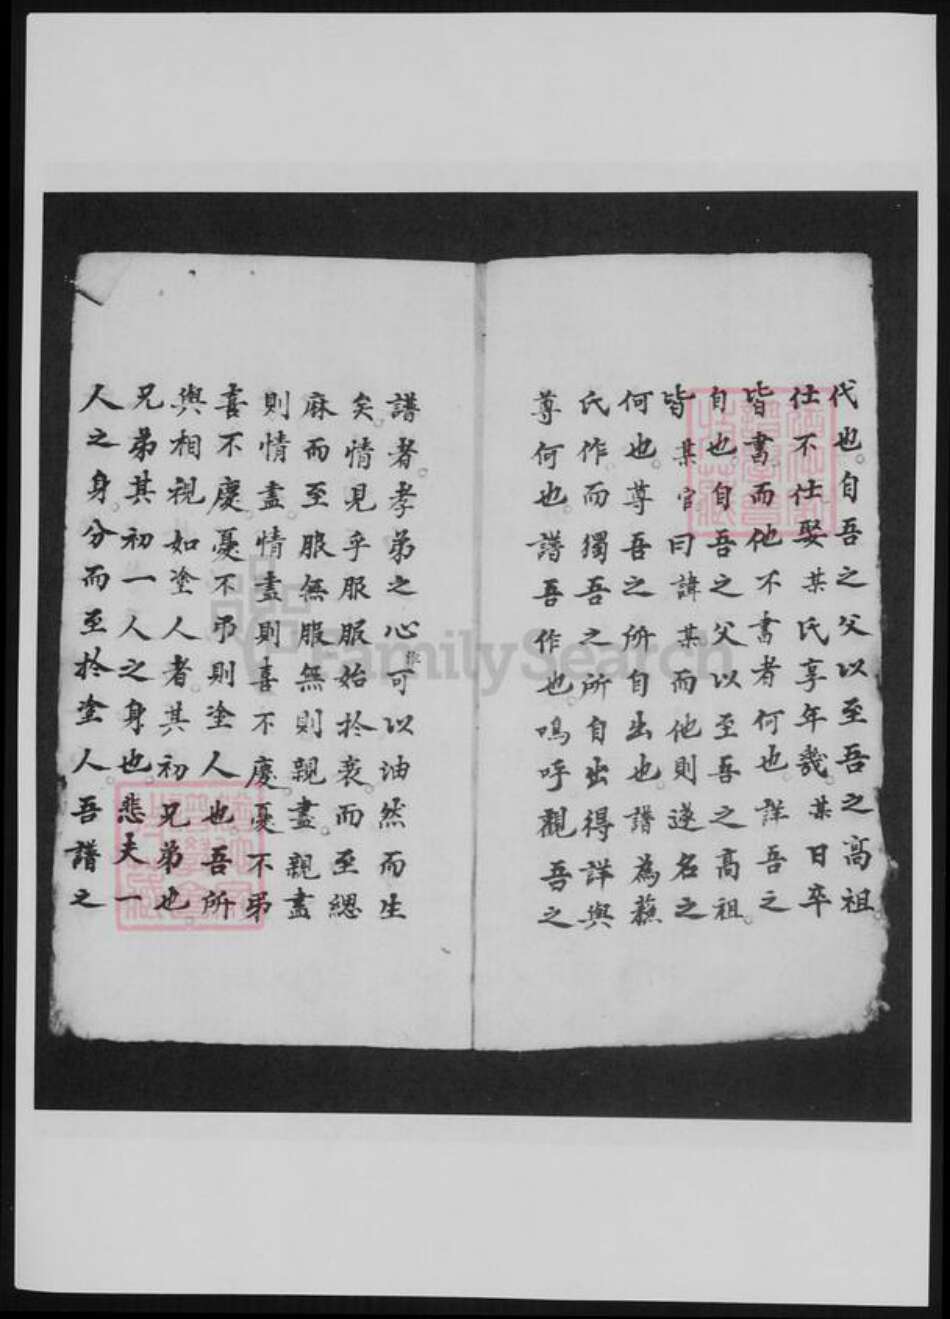 代也自吾之父以至吾之高祖
仕不仕娶某氏享年幾某日卒
皆書而他不書者何也詳吾之
自也自吾之父以至吾之高祖
皆某官曰諱某而他則遂名之
何也尊吾之所自出也譜為蘇
氏作而獨吾之所自出得詳與
尊何也譜吾作也嗚呼觀吾之
譜者孝弟之心可以油然而生
矣情見乎服服始於衰而至緦
麻而至服無服無則親盡親盡
則情盡情盡則喜不慶憂不弔
喜不慶憂不弔則塗人也吾所
與相視如塗人者其初兄弟也
兄弟其初一人之身也悲夫一
人之身分而至於塗人吾譜之
FamilySearch